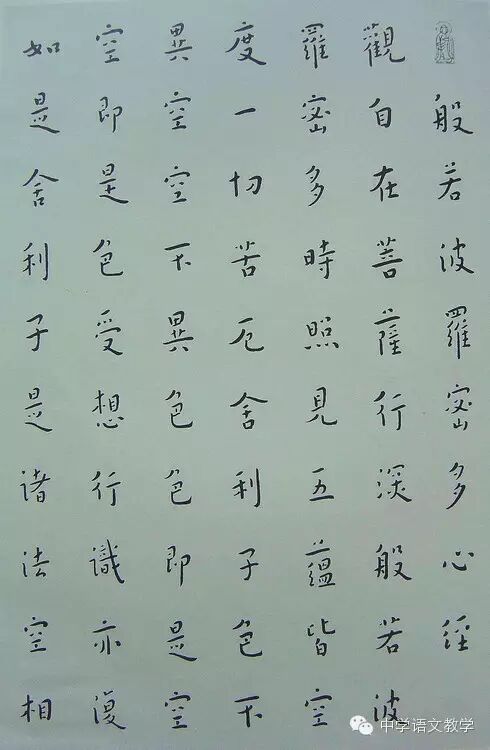 般若波羅密多心經
觀自在菩薩行深般若波
羅密多時照見五蘊皆空
度一切苦厄舍利子色不
異空空不異色色即是空
空即是色受想行識亦復
如是舍利子是諸法空相
中学语文教学